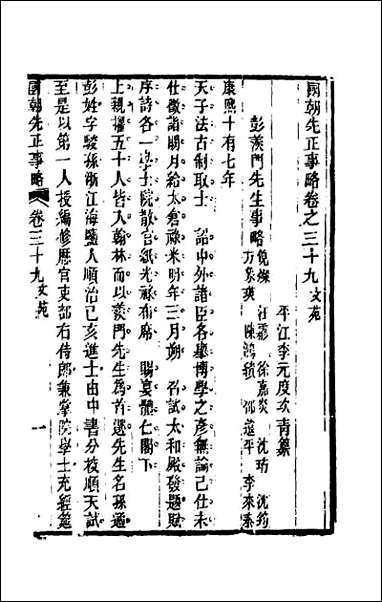 國朝先正事略卷之三十九 文苑
平江李元度次青纂
彭羨門先生事略 倪燦 汪霦 徐嘉炎 沈珩 沈筠
方象瑛 陳鴻績 邵遠平 李來泰
康熙十有七年
天子法古制取士 詔中外諸臣各舉博學之彥無論已仕未
仕徵詣闕月給太倉祿米明年三月朔 召試太和殿發題賦
序詩各一學士院散官紙光祿布席 賜宴體仁閣下
上親擢五十人皆入翰林而以羨門先生爲首選先生名孫遹
彭姓字駿孫浙江海鹽人順治己亥進士由中書分校順天試
至是以第一人授編修歷官吏部右侍郎兼掌院學士充經筵
國朝先正事略 卷三十九 文苑 一